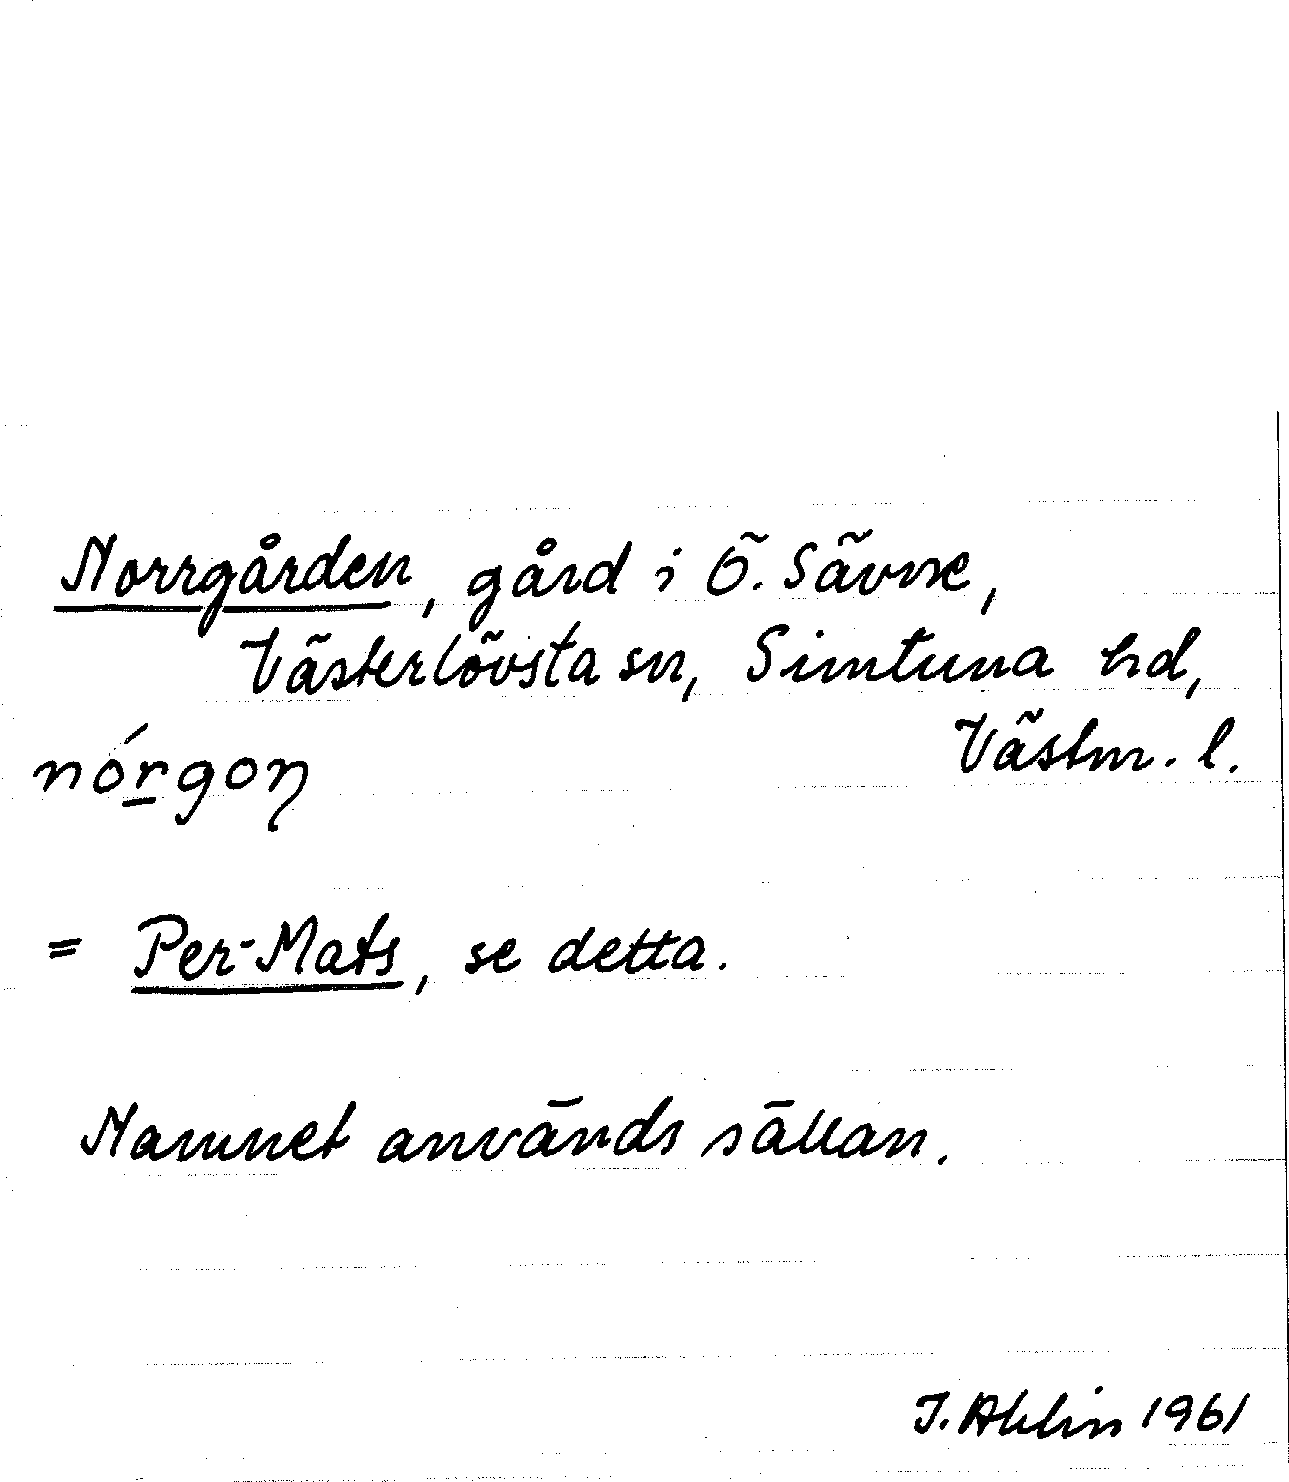 Norrgården, gård i Ö. Sävne,
Västerlövsta sn, Simtuna hd,
Västm. l.
nórgoŋ
= Per-Mats, se detta.
Namnet används sällan.
I. Ahlin 1961